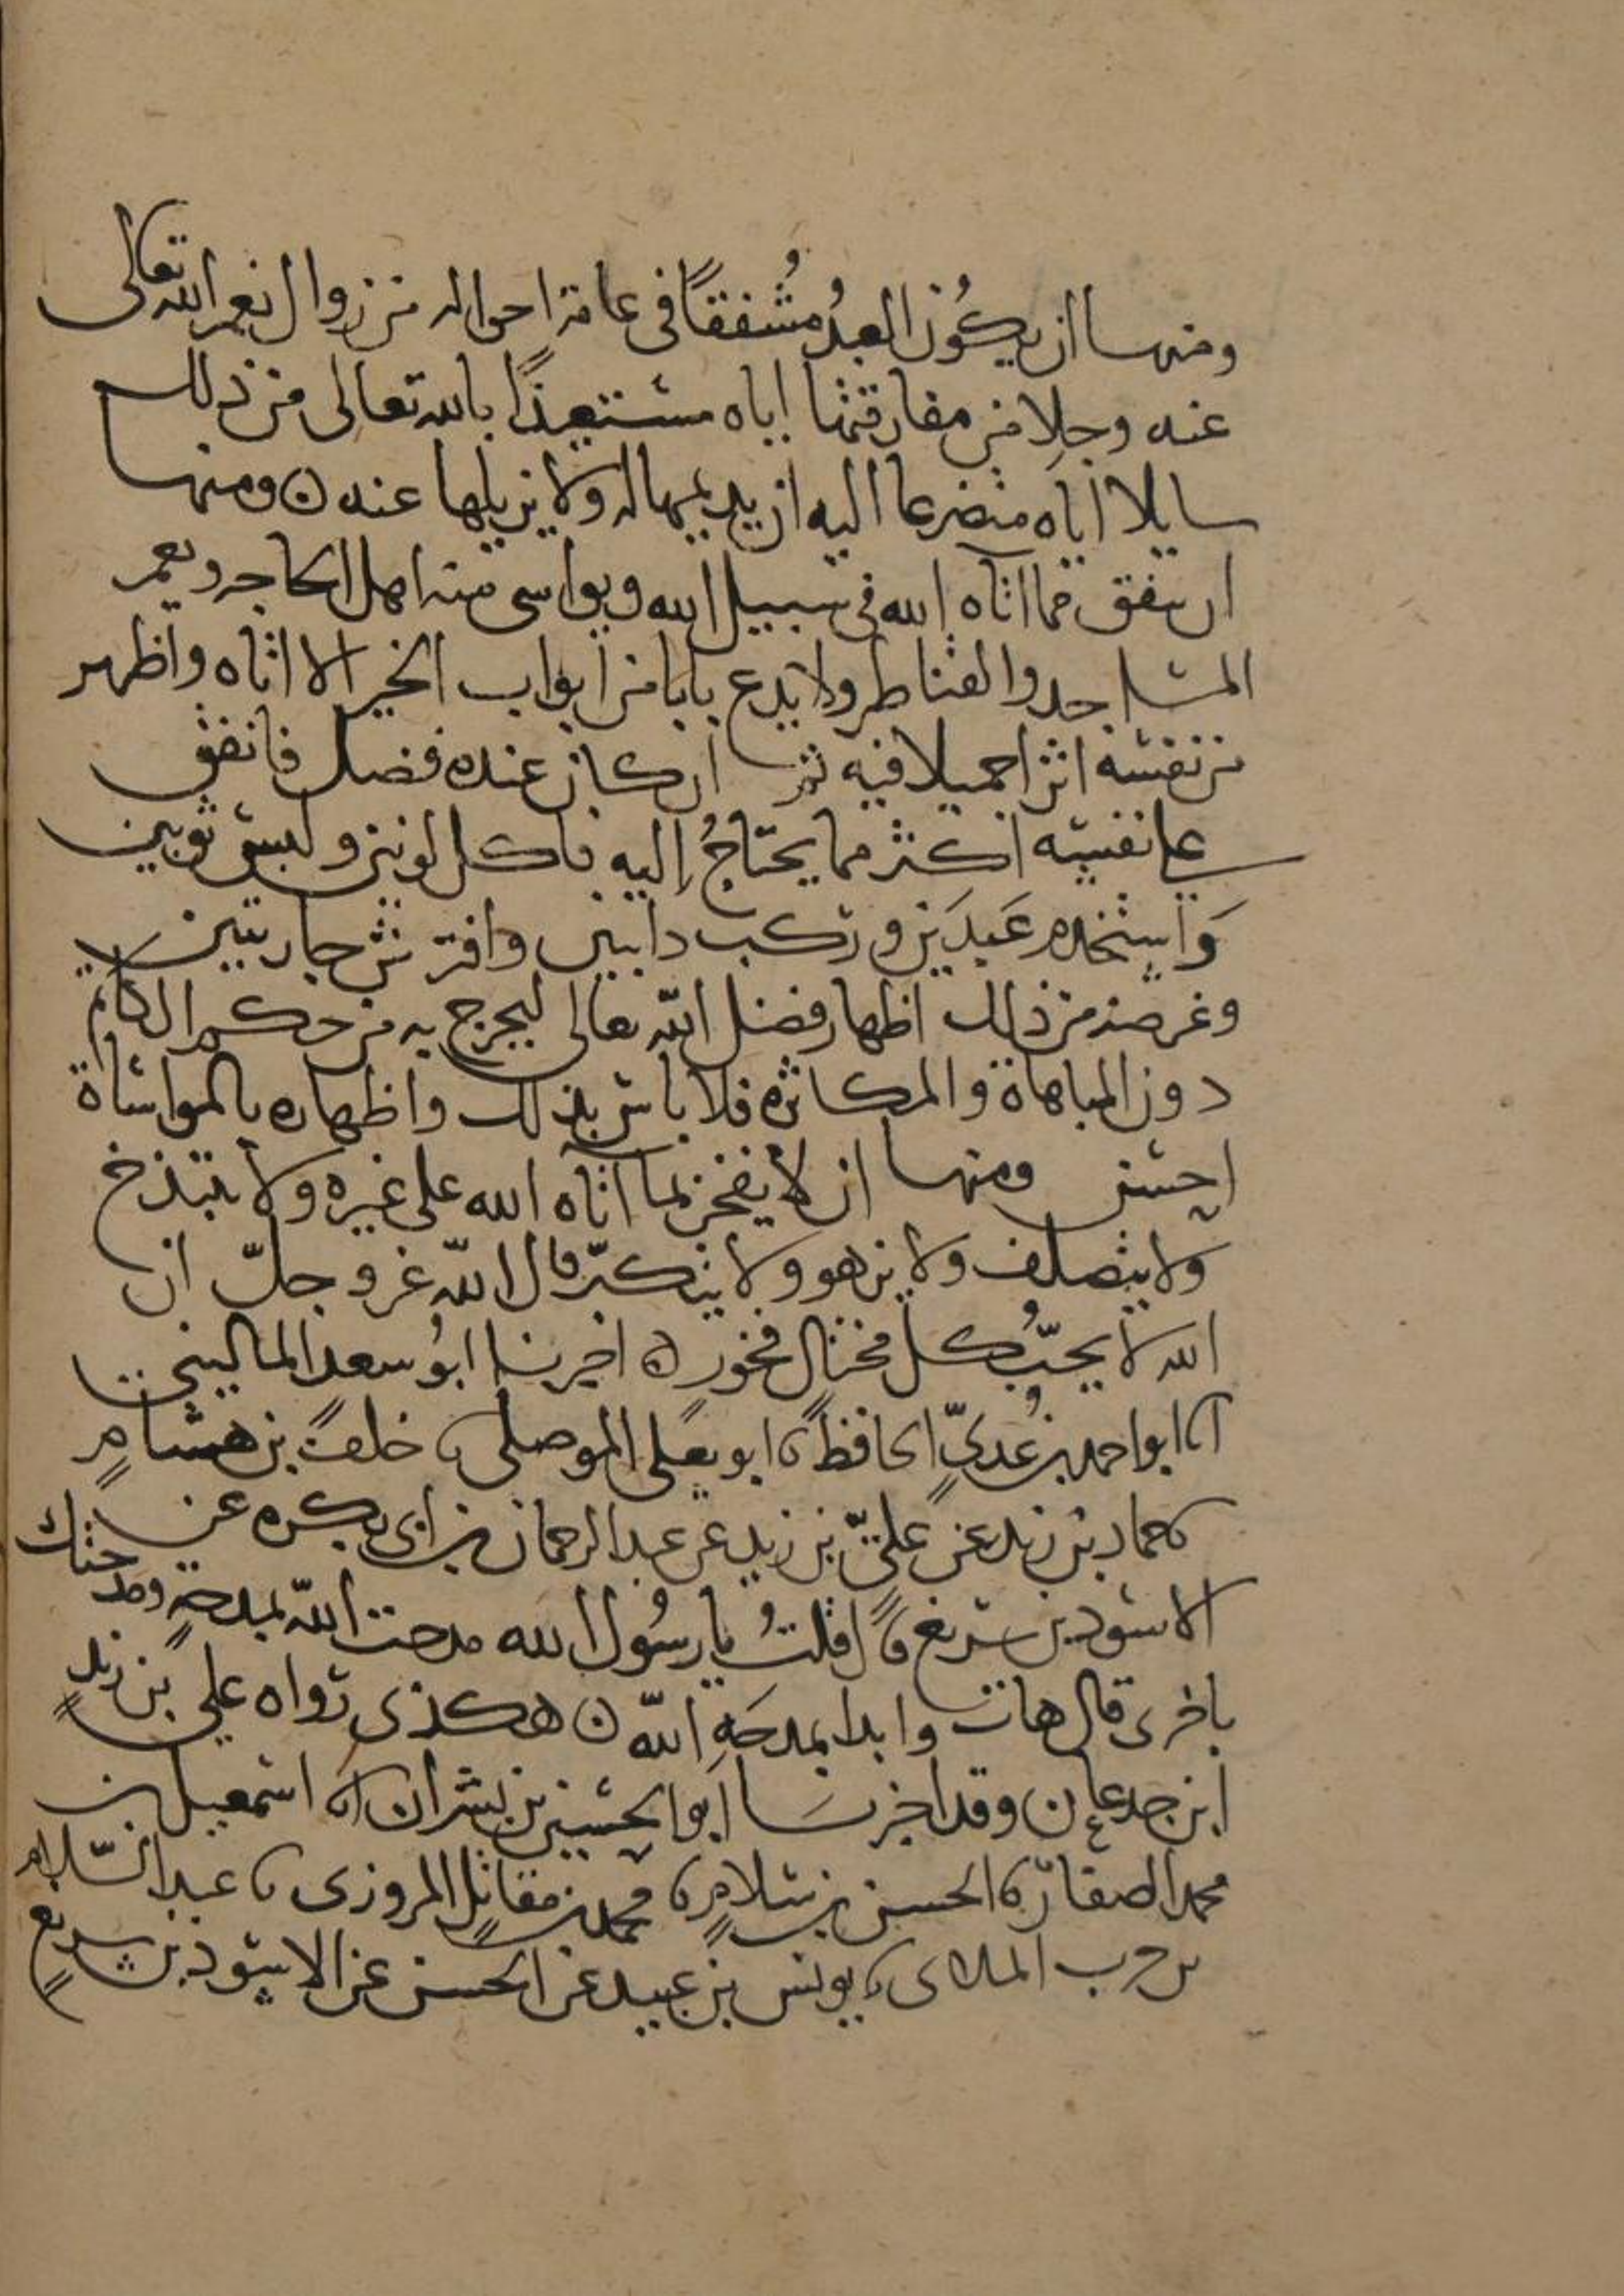 ومنها ان يكُون العبدُ مُشفقًا في عامة احواله من زوال نعم الله تعالى
عنه وجلا من مفارقتها اياه مستعيذًا بالله تعالى من ذلك
سايلا اياه متضرعا اليه ان يديمها له ولا يزيلها عنه ن ومنها
ان ينفق مما اتاه الله في سبيل الله ويواسي منه اهل الحاجه ويعمر
المساجد والقناطر ولا يدع بابا من ابواب الخير الا اتاه واظهر
من نفسه اثرا جميلا فيه ثم ان كان عنده فضل فانفق
على نفسه اكثر مما يحتاجُ إليه فاكل لونين ولبس ثوبين
وَاستخدم عَبدَين وركب دابتين وافترش جاريتين
وغرضه من ذلك اظهار فضل الله تعالى ليخرج به من حكم الكاتم
دون المباهاة والمكاثره فلا باس بذلك واظهاره بالمواساة
احسن ومنها ان لا يفخر بما اتاه الله على غيره ولا يتبذخ
ولا يتصلف ولا يزهو ولا يتكبّر قال اللّه عز وجلّ ان
الله لا يحبّ كل مختال فخور ه اخبرنا ابوُ سعد الماليني
انا ابو احمد بن عُديّ الحافظ نا ابو يعلى الموصلي نا خلف بن هشامٍ
نا حماد بن زيد عن عليّ بن زيد عن عبد الرحمان بن ابى بكره عن
الاسود بن سريع قال قلتُ يا رسُول الله مدحت اللّه بمدحةٍ ومدحتك
باخرى قال هات وابدا بمدحَةِ اللّه ن هكذى رواه علي بن زيد
ابن جدعان ن وقد اخبرنا ابو الحسين بن بشران انا اسمعيل بن
محمد الصفار نا الحسن بن سلامٍ نا محمد بن مقاتل المروزى نا عبد السّلام
بن حرب الملائى نا يونس بن عبيد عن الحسن عن الاسود بن سريع